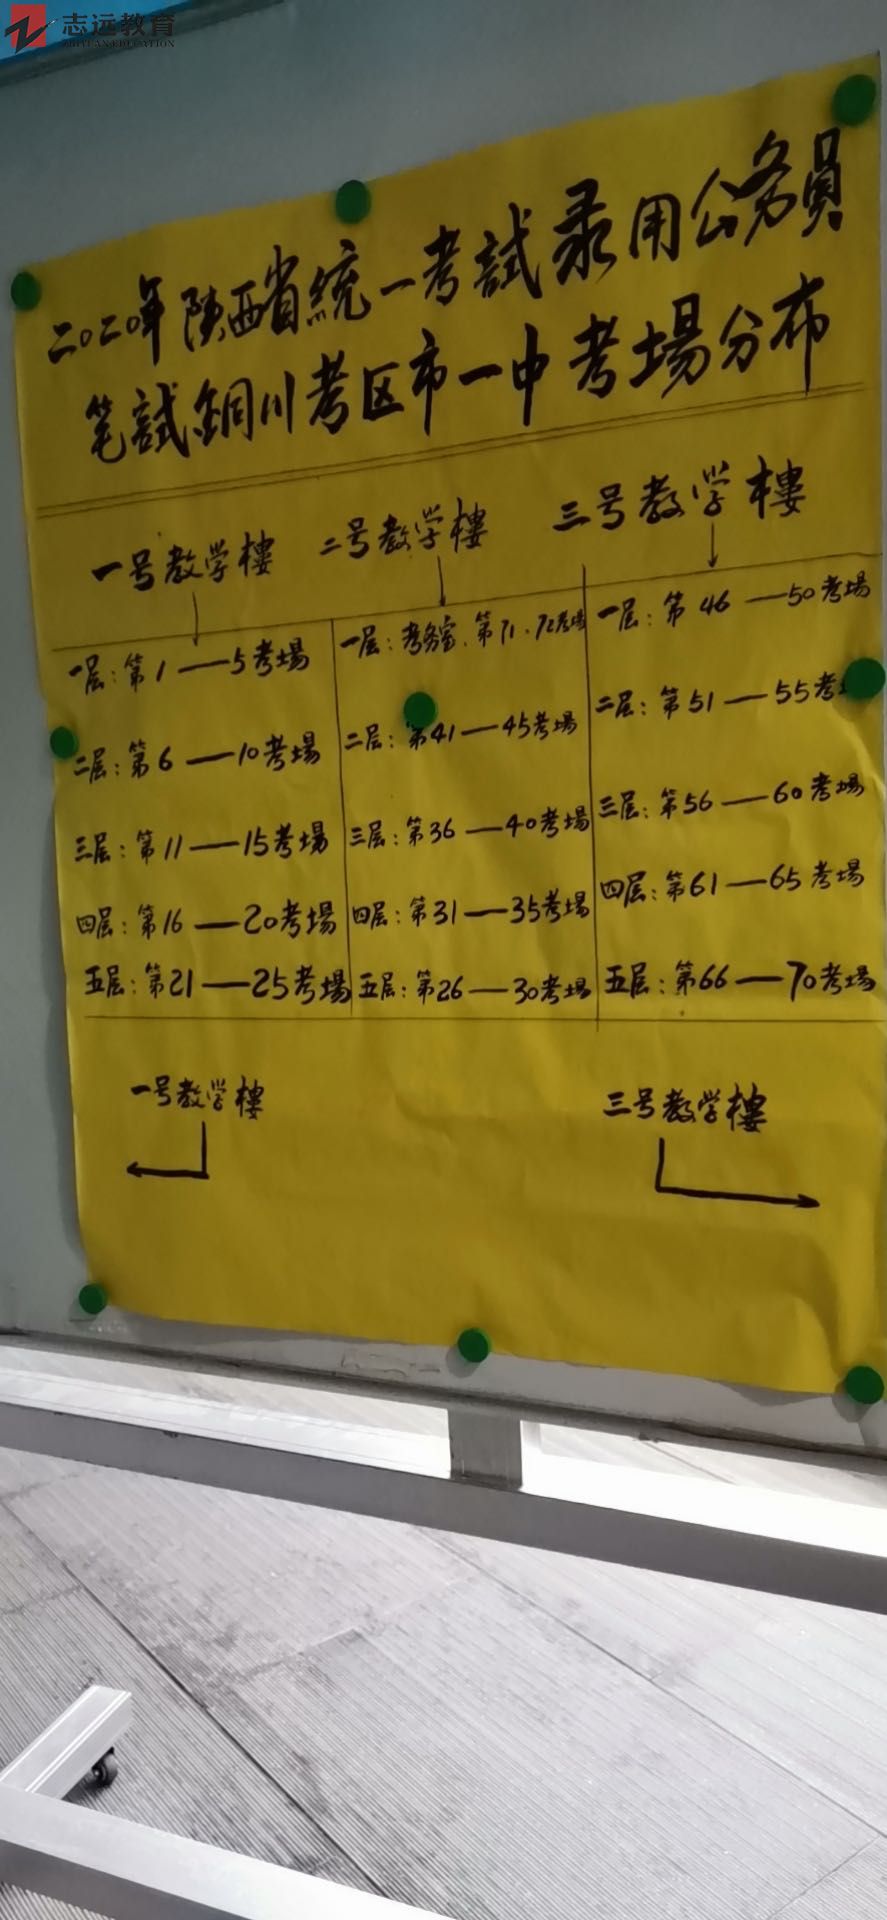 志远教育
ZHIYUAN EDUCATION
二〇二〇年陕西省統一考試录用公务員
笔試銅川考区市一中考場分布
一号教学樓 二号教学樓 三号教学樓
一层:第1——5考場 一层:考务室、第71、72考場 一层:第46——50考場
二层:第6——10考場 二层:第41——45考場 二层:第51——55考
三层:第11——15考場 三层:第36——40考場 三层:第56——60考場
四层:第16——20考場 四层:第31——35考場 四层:第61——65考場
五层:第21——25考場 五层:第26——30考場 五层:第66——70考場
一号教学樓 三号教学樓